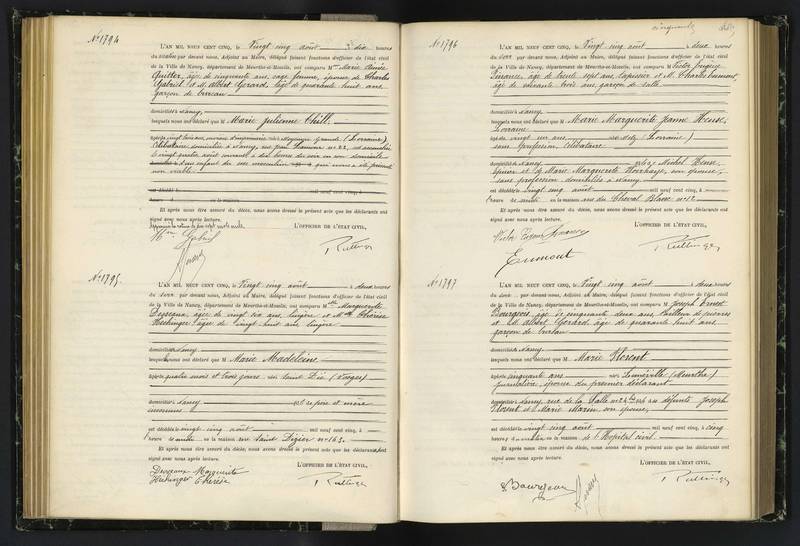 N° 1794
L'AN MIL NEUF CENT CINQ, le Vingt cinq août à dix heures
du matin par devant nous, Adjoint au Maire, délégué faisant fonctions d'officier de l'état civil
de la Ville de Nancy, département de Meurthe-et-Moselle, ont comparu Mme Marie Aimée
Quitter, âgée de cinquante ans, sage femme, épouse de Charles
Gabriel et M. Albert Gérard, âgé de quarante huit ans
garçon de bureau
domiciliés à Nancy
lesquels nous ont déclaré que M Marie Julienne Chill
âgée de vingt trois ans, née à Moyeuvre Grande (Lorraine)
célibataire domiciliée à Nancy, n° 22, est accouchée
le vingt quatre août courant à dix heures du soir en son domicile
d'un enfant du sexe masculin qui nous a été présenté
non viable
est décédé le mil neuf cent cinq, à
heure d en la maison
Et après nous être assuré du décès, nous avons dressé le présent acte que les déclarants ont
signé avec nous après lecture.
L'OFFICIER DE L'ÉTAT CIVIL,
Gabriel
N° 1795
L'AN MIL NEUF CENT CINQ, le Vingt cinq août à deux heures
du soir par devant nous, Adjoint au Maire, délégué faisant fonctions d'officier de l'état civil
de la Ville de Nancy, département de Meurthe-et-Moselle, ont comparu Mlle Marguerite
Desseaux, âgée de vingt six ans, lingère et Mlle Thérèse
Heckinger âgée de vingt huit ans lingère
domiciliés à Nancy
lesquels nous ont déclaré que M Marie Madeleine
âgée de quatre mois et trois jours née Saint Dié (Vosges)
domiciliée à Nancy de père et mère
inconnus
est décédée le vingt cinq août mil neuf cent cinq, à
heure du matin en la maison rue Saint Dizier n° 163
Et après nous être assuré du décès, nous avons dressé le présent acte que les déclarants ont
signé avec nous après lecture.
L'OFFICIER DE L'ÉTAT CIVIL,
Desseaux Marguerite
Heckinger Thérèse
cinquante
N° 1796
L'AN MIL NEUF CENT CINQ, le Vingt cinq août à deux heures
du soir par devant nous, Adjoint au Maire, délégué faisant fonctions d'officier de l'état civil
de la Ville de Nancy, département de Meurthe-et-Moselle, ont comparu Victor Eugène
âgé de trente sept ans, tapissier et M. Charles Eumont,
âgé de soixante trois ans garçon de salle
domiciliés à Nancy
lesquels nous ont déclaré que M Marie Marguerite Jeanne Hesse,
Lorraine
âgée de vingt un ans née Metz (Lorraine)
sans profession célibataire
domiciliée à Nancy Michel Hesse
épicier et de Marie Marguerite son épouse,
sans profession domiciliés à Nancy
est décédée le vingt cinq août mil neuf cent cinq, à
heure de midi en la maison rue du Cheval Blanc n° 12
Et après nous être assuré du décès, nous avons dressé le présent acte que les déclarants ont
signé avec nous après lecture.
L'OFFICIER DE L'ÉTAT CIVIL,
Victor Eugène
Eumont
N° 1797
L'AN MIL NEUF CENT CINQ, le Vingt cinq août à deux heures
du soir par devant nous, Adjoint au Maire, délégué faisant fonctions d'officier de l'état civil
de la Ville de Nancy, département de Meurthe-et-Moselle, ont comparu M. Joseph Ernest
Bourgeois, âgé de cinquante deux ans, tailleur de pierres
et M. Albert Gérard, âgé de quarante huit ans
garçon de bureau
domiciliés à Nancy
lesquels nous ont déclaré que M Marie Florent
âgée de cinquante ans née Lunéville (Meurthe)
journalière, épouse du premier déclarant
domiciliée à Nancy, rue de la Salle n° 24 fille de défunts Joseph
Florent et de Marie son épouse,
est décédée le vingt cinq août mil neuf cent cinq, à cinq
heures du matin en la maison de l'Hôpital civil
Et après nous être assuré du décès, nous avons dressé le présent acte que les déclarants ont
signé avec nous après lecture.
L'OFFICIER DE L'ÉTAT CIVIL,
Bourgeois